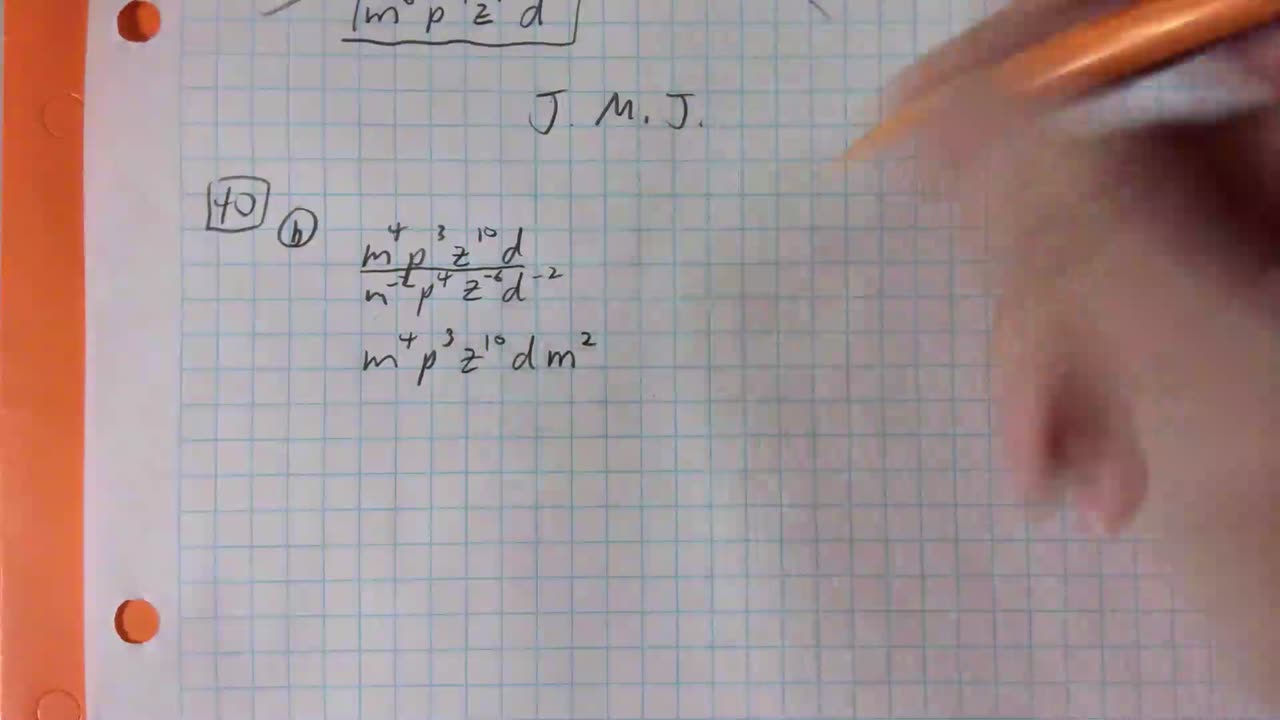 m p z d
J. M. J.
40
b m⁴p³z¹⁰d
m⁻²p⁴z⁻⁶d⁻²
m⁴p³z¹⁰dm²